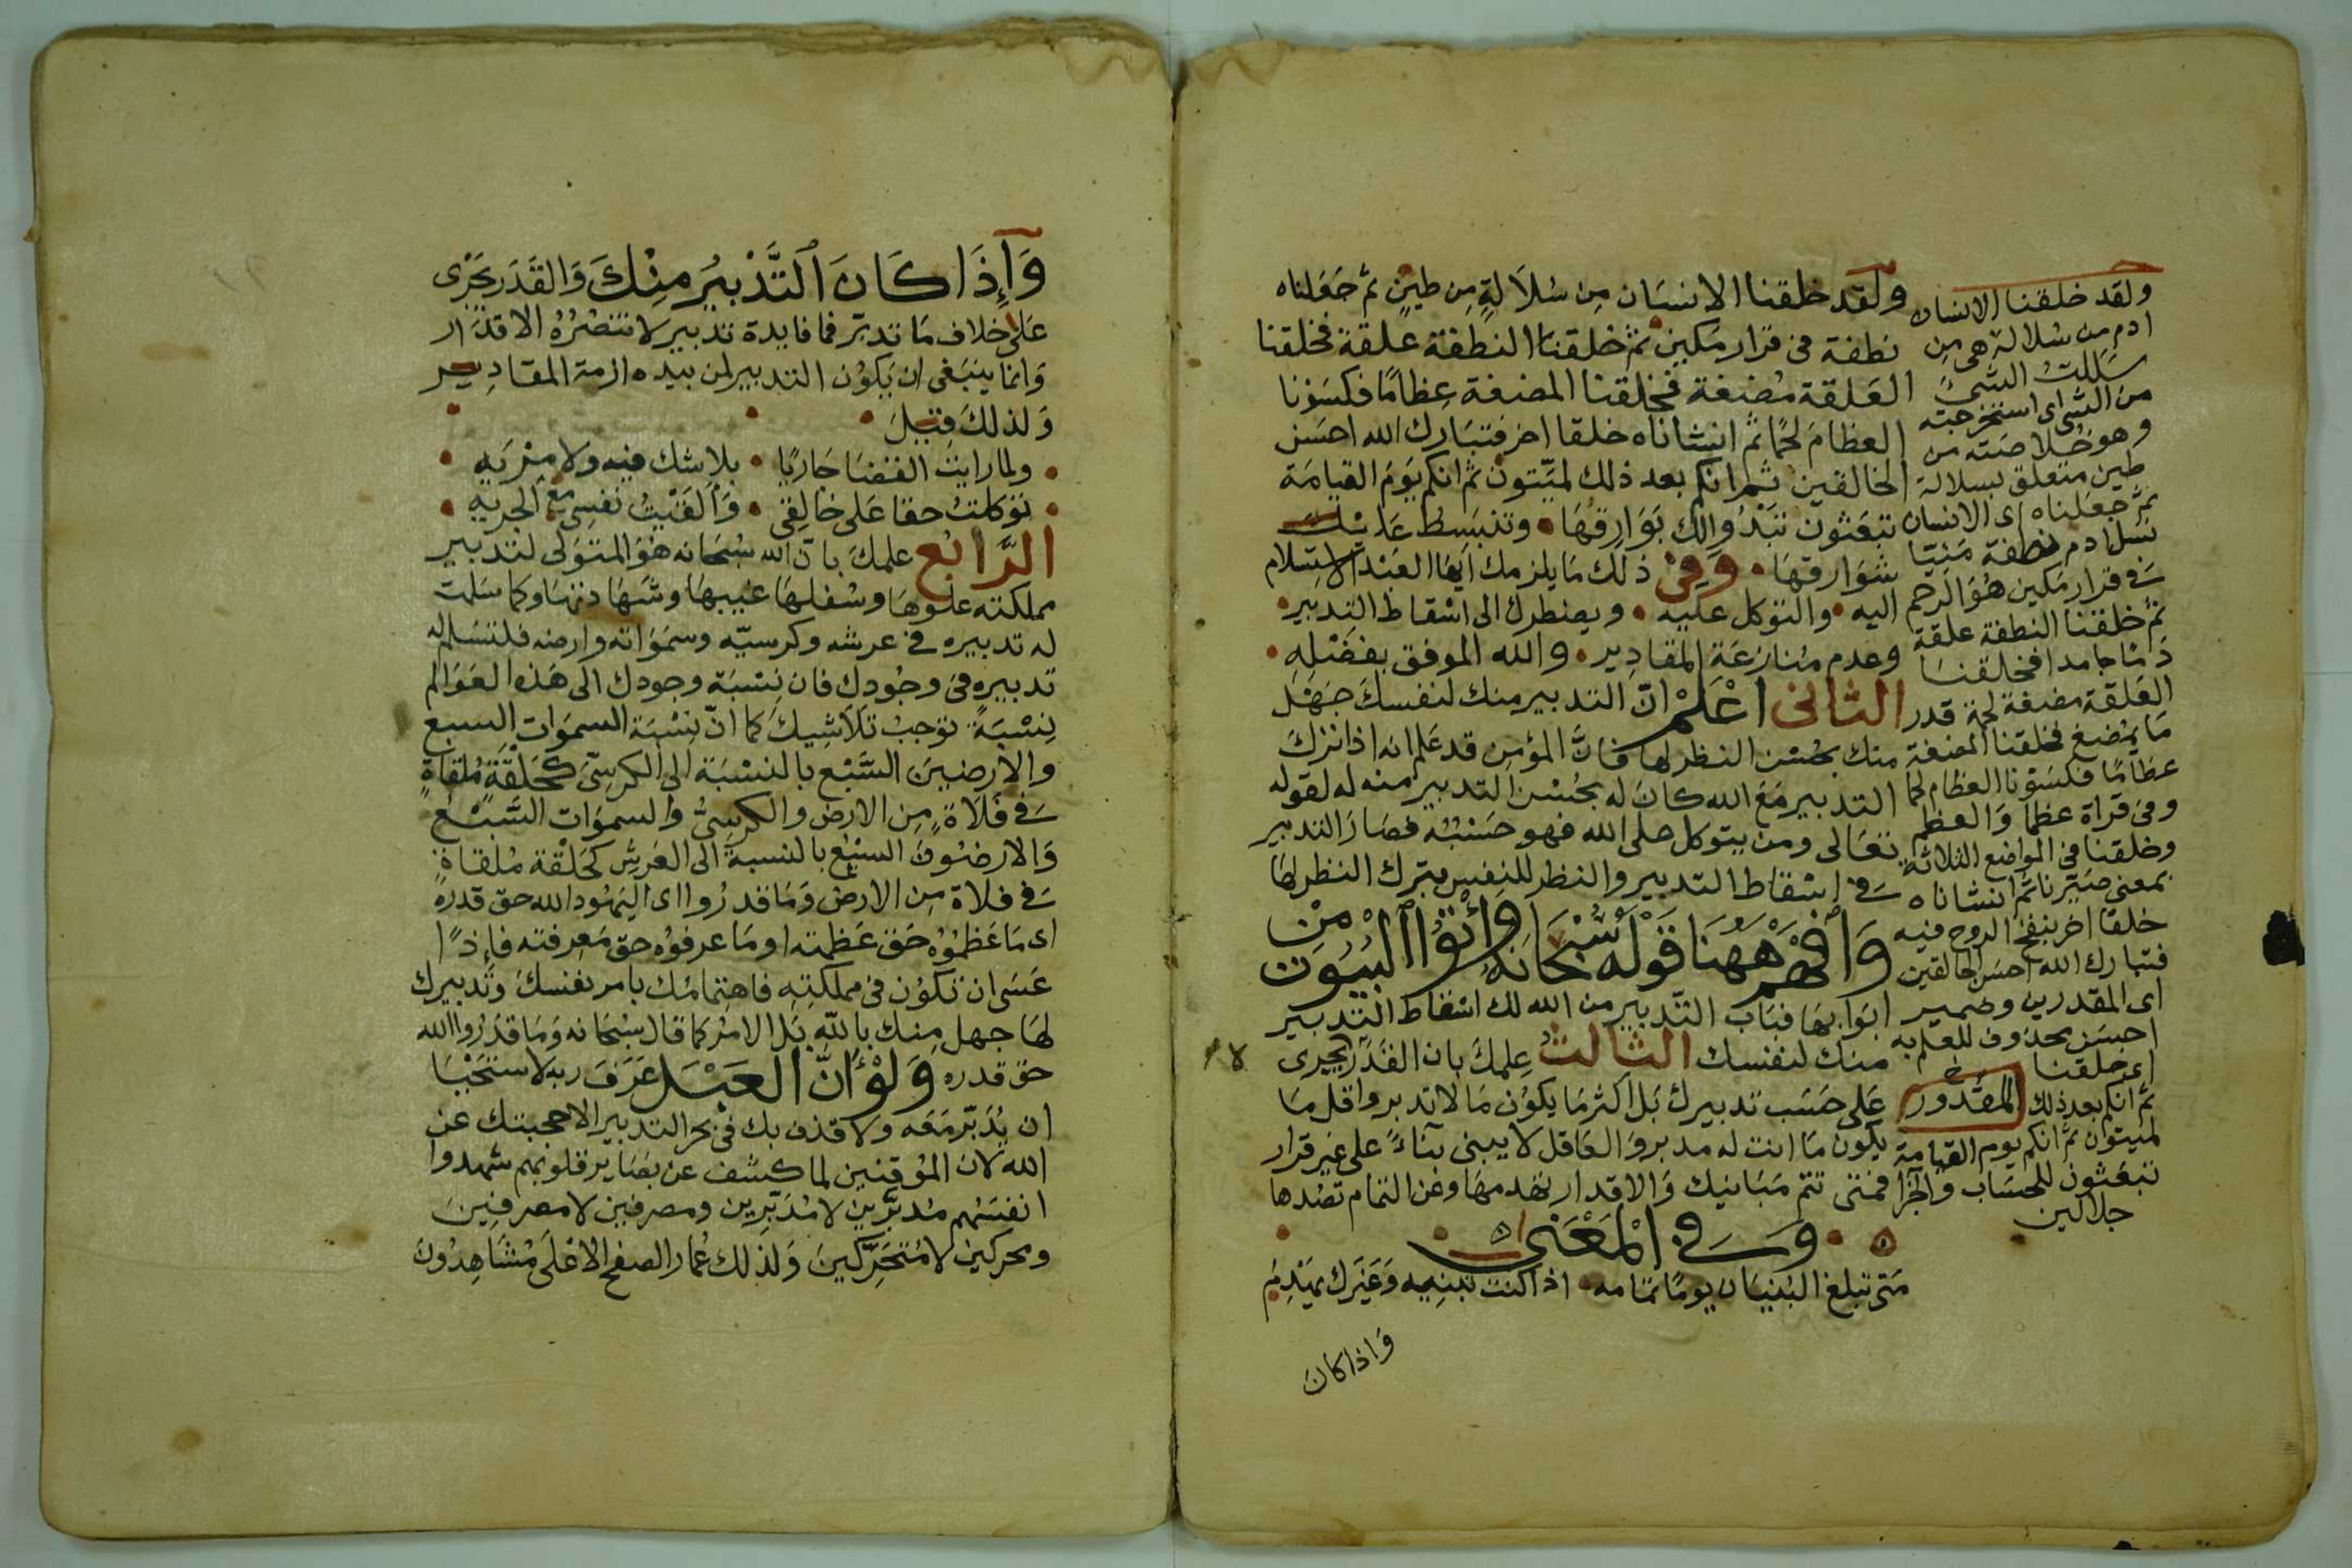 ولقد خلقنا الانسان مِن سُلَالَةٍ مِن طينٍ ثم جَعَلناه
نطفة فى قرار مكين ثم خلقنا النطفة علقة فخلقنا
العَلقة مُضغة فخلقنا المضغة عِظامًا فكسَوْنا
العظامَ لحمًا ثم انشاناه خلقا اخر فتبَارك الله احسَن
الخالقين ثم انكم بعد ذلك لميّتون ثم انكم يَوم القيامَة
تبعَثون تبْدُوا لك بَوَارِقُهَا وتنبَسِطُ عَليْكَ
شوَارقهَا وَفى ذلك مَا يلزمك ايهَا العَبْد الاستسلام
اليه والتوكل عليه ويضطرك الى اسْقاط التدبير
وعدم مُنازعَة المقادِير والله الموفق بفضْلِه
الثانى اعْلمْ انّ التدبير منك لنفسكَ جَهْل
منك بحُسْن النظر لها فانَّ المؤمن قد عَلم انه اذا ترَكَ
التدبير مَعَ الله كانَ له بحُسْن التدبير منه له لقوله
تعَالى ومن يتوكل على الله فهو حَسْبُه فصَارَ التدبير
فى اسْقاط التدبير والنظر للنفس بترك النظر لهَا
وَافْهَمْ هَهُنَا قَوْلَه سُبْحَانَهُ وأتوُا البُيُوتَ مِنْ
ابَوابهَا فبَابُ التّدبير من الله لك اسْقاط التدبير
منك لنفسك الثالثُ عِلمكَ بان القَدَر لا يجرى
عَلى حَسَب تدبيرك بَل اكثر مَا يكوُن مَا لا تدبر واقل مَا
يكون مَا انت له مدبر وَالعَاقل لا يبنى بنَاءً على غير قرار
فمتى تتم مَبَانيك وَالاقدار تهدمهَا وعَن التمام تصُدها
وَفى المَعْنى
مَتى تبلغ البُنيَان يومًا تمامه اذا كنت تبنِيه وَغيرك يَهْدِمُ
واذا كان
ولقد خلقنا الانسان
ادم من سُلالة هى مِن
سَللتُ الشىءَ
من الشئ اى استخرجته
وهو خُلاصَته من
طين متعلق بسلالة
ثم جعَلناه اى الانسان
نسْل ادم نطفة مَنِيّا
فى قرار مَكين هُوَ الرحم
ثم خلقنا النطفة علقة
دَمًا جامدا فخلقنا
العَلقة مضغة لحمة قدر
مَا يُمضغ فخلقنا المضغة
عظَامًا فكسَوْنا العظام لحمًا
وفى قراة عظما وَالعظم
وخلقنا فى المواضع الثلاثة
بمعنى صَيّرنا ثم انشاناه
خلقا اخر بنفخ الروح فيه
فتبارك الله احسَن الخالقين
اى المقدرين وضمير
احسَن محذوف للعلم به
اى خلقنا
المقدور
ثم انكم بعد ذلك
لميتون ثم انكم يوم القيامة
تبعَثون للحسَاب والجَزا
جلالين
وَاِذَا كَانَ التَّدْبِيرُ مِنْكَ وَالقَدَر يَجْرِى
عَلى خلاف مَا تدبّر فما فايدة تدبير لا تنصُرُهُ الاقدَار
وَانما ينبَغى ان يكوُن التدبير لمن بيده ازمة المقادِير
وَلذلكَ قِيلَ
ولما رايتُ القضَا جَاريًا بلا شك فيه ولا مِرْيَه
توكلتُ حقا عَلى خالِقى وَأَلقَيْتُ نفسِى مَع الجريه
الرَّابعُ علمكَ بانّ الله سُبحَانه هُوَ المتوَلى لتدبير
مملكته علوهَا وسُفلهَا غيبهَا وشهَادتهَا وكما سَلمت
له تدبيره فى عرشه وكرسيّه وسمَوَاته وارضه فلتسَلم له
تدبيره فى وجُودِك فان نِسْبَة وجودك الى هَذه العَوَالم
نِسْبَةً توجبُ تَلَاشِيكَ كما انّ نِسْبَة السموَات السبع
والارضِينَ السَّبْع بالنسْبَة الى الكرسِىّ كَحَلْقَةٍ مُلقاةٍ
فى فَلَاةٍ مِن الارض والكرسِىُّ والسموَات السَّبْعُ
وَالارضُونَ السَبْع بالنسبة الى العَرشِ كحَلْقة مُلقاةٍ
فى فلاة مِن الارض وَمَا قدرُوا اى اليَهُود الله حق قدره
اى مَا عَظمُوْه حَقَّ عَظمته او مَا عرفوُه حق مَعرفته فاِذًا
عَسَى ان تكوُن فى مملكتِهِ فاهتمامُك بامر نفسكَ وتَدبيرك
لهَا جهل مِنك بالله بَل الامْر كما قال سبْحَانه وَمَا قدَرُوا الله
حَق قدره وَلَوْ اَنَّ العَبْدَ عَرَفَ ربه لاستحْيَا
ان يُدَبّر مَعَه ولا قذف بك فى بحر التدبير الا حجبتك عن
الله لان المُوقنين لما كشف عن بصَاير قلوبهم شهدوا
انفسَهم مُدَبَّرين لا مُدَبِّرِين ومصرفين لا مصرفِين
ومحركين لا مُتحَرِّكينَ وَلذلك عُمار الصفح الاعْلَى مُشَاهِدُونَ